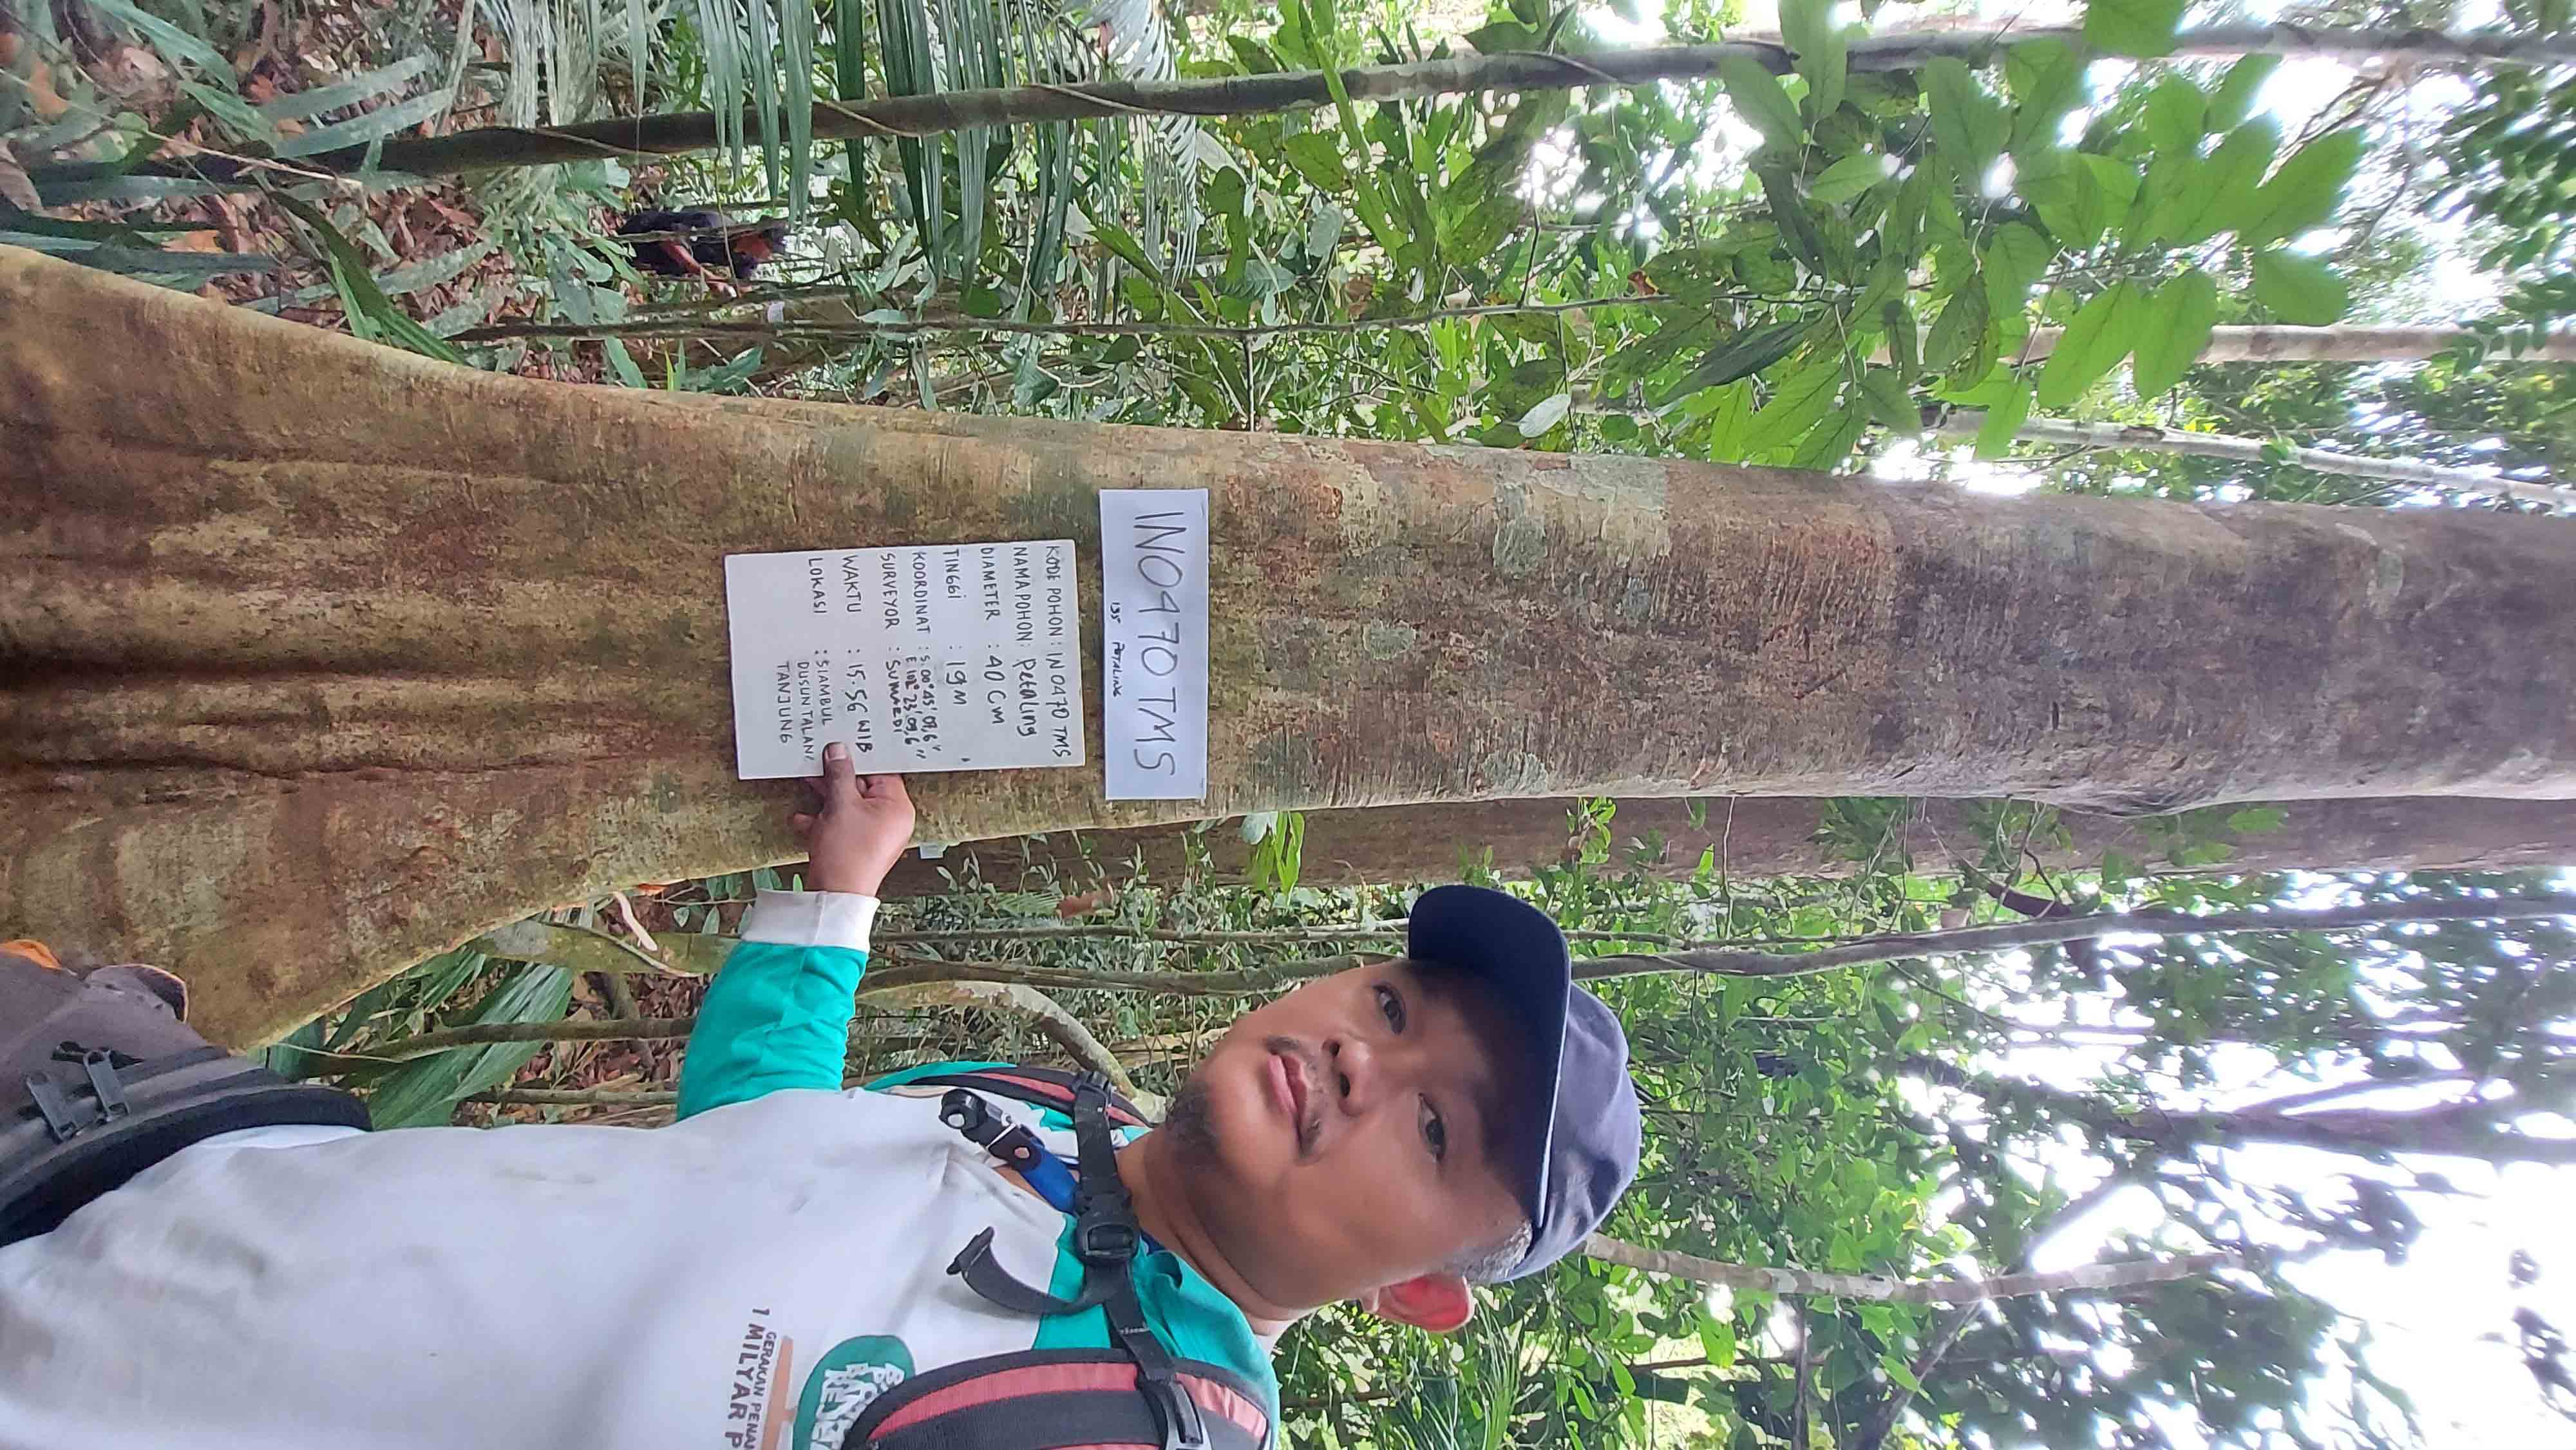 IN0470 TMS
135 PETALING
KODE POHON : IN 0470 TMS
NAMA POHON : Petaling
DIAMETER : 40 CM
TINGGI : 19 M
KOORDINAT : S 00° 45' 07,6"
E 102° 23' 09,6"
SURVEYOR : SUMAEDI
WAKTU : 15.56 WIB
LOKASI : SIAMBUL
DUSUN TALAN/
TANJUNG
GERAKAN PENA
1 MILYAR P